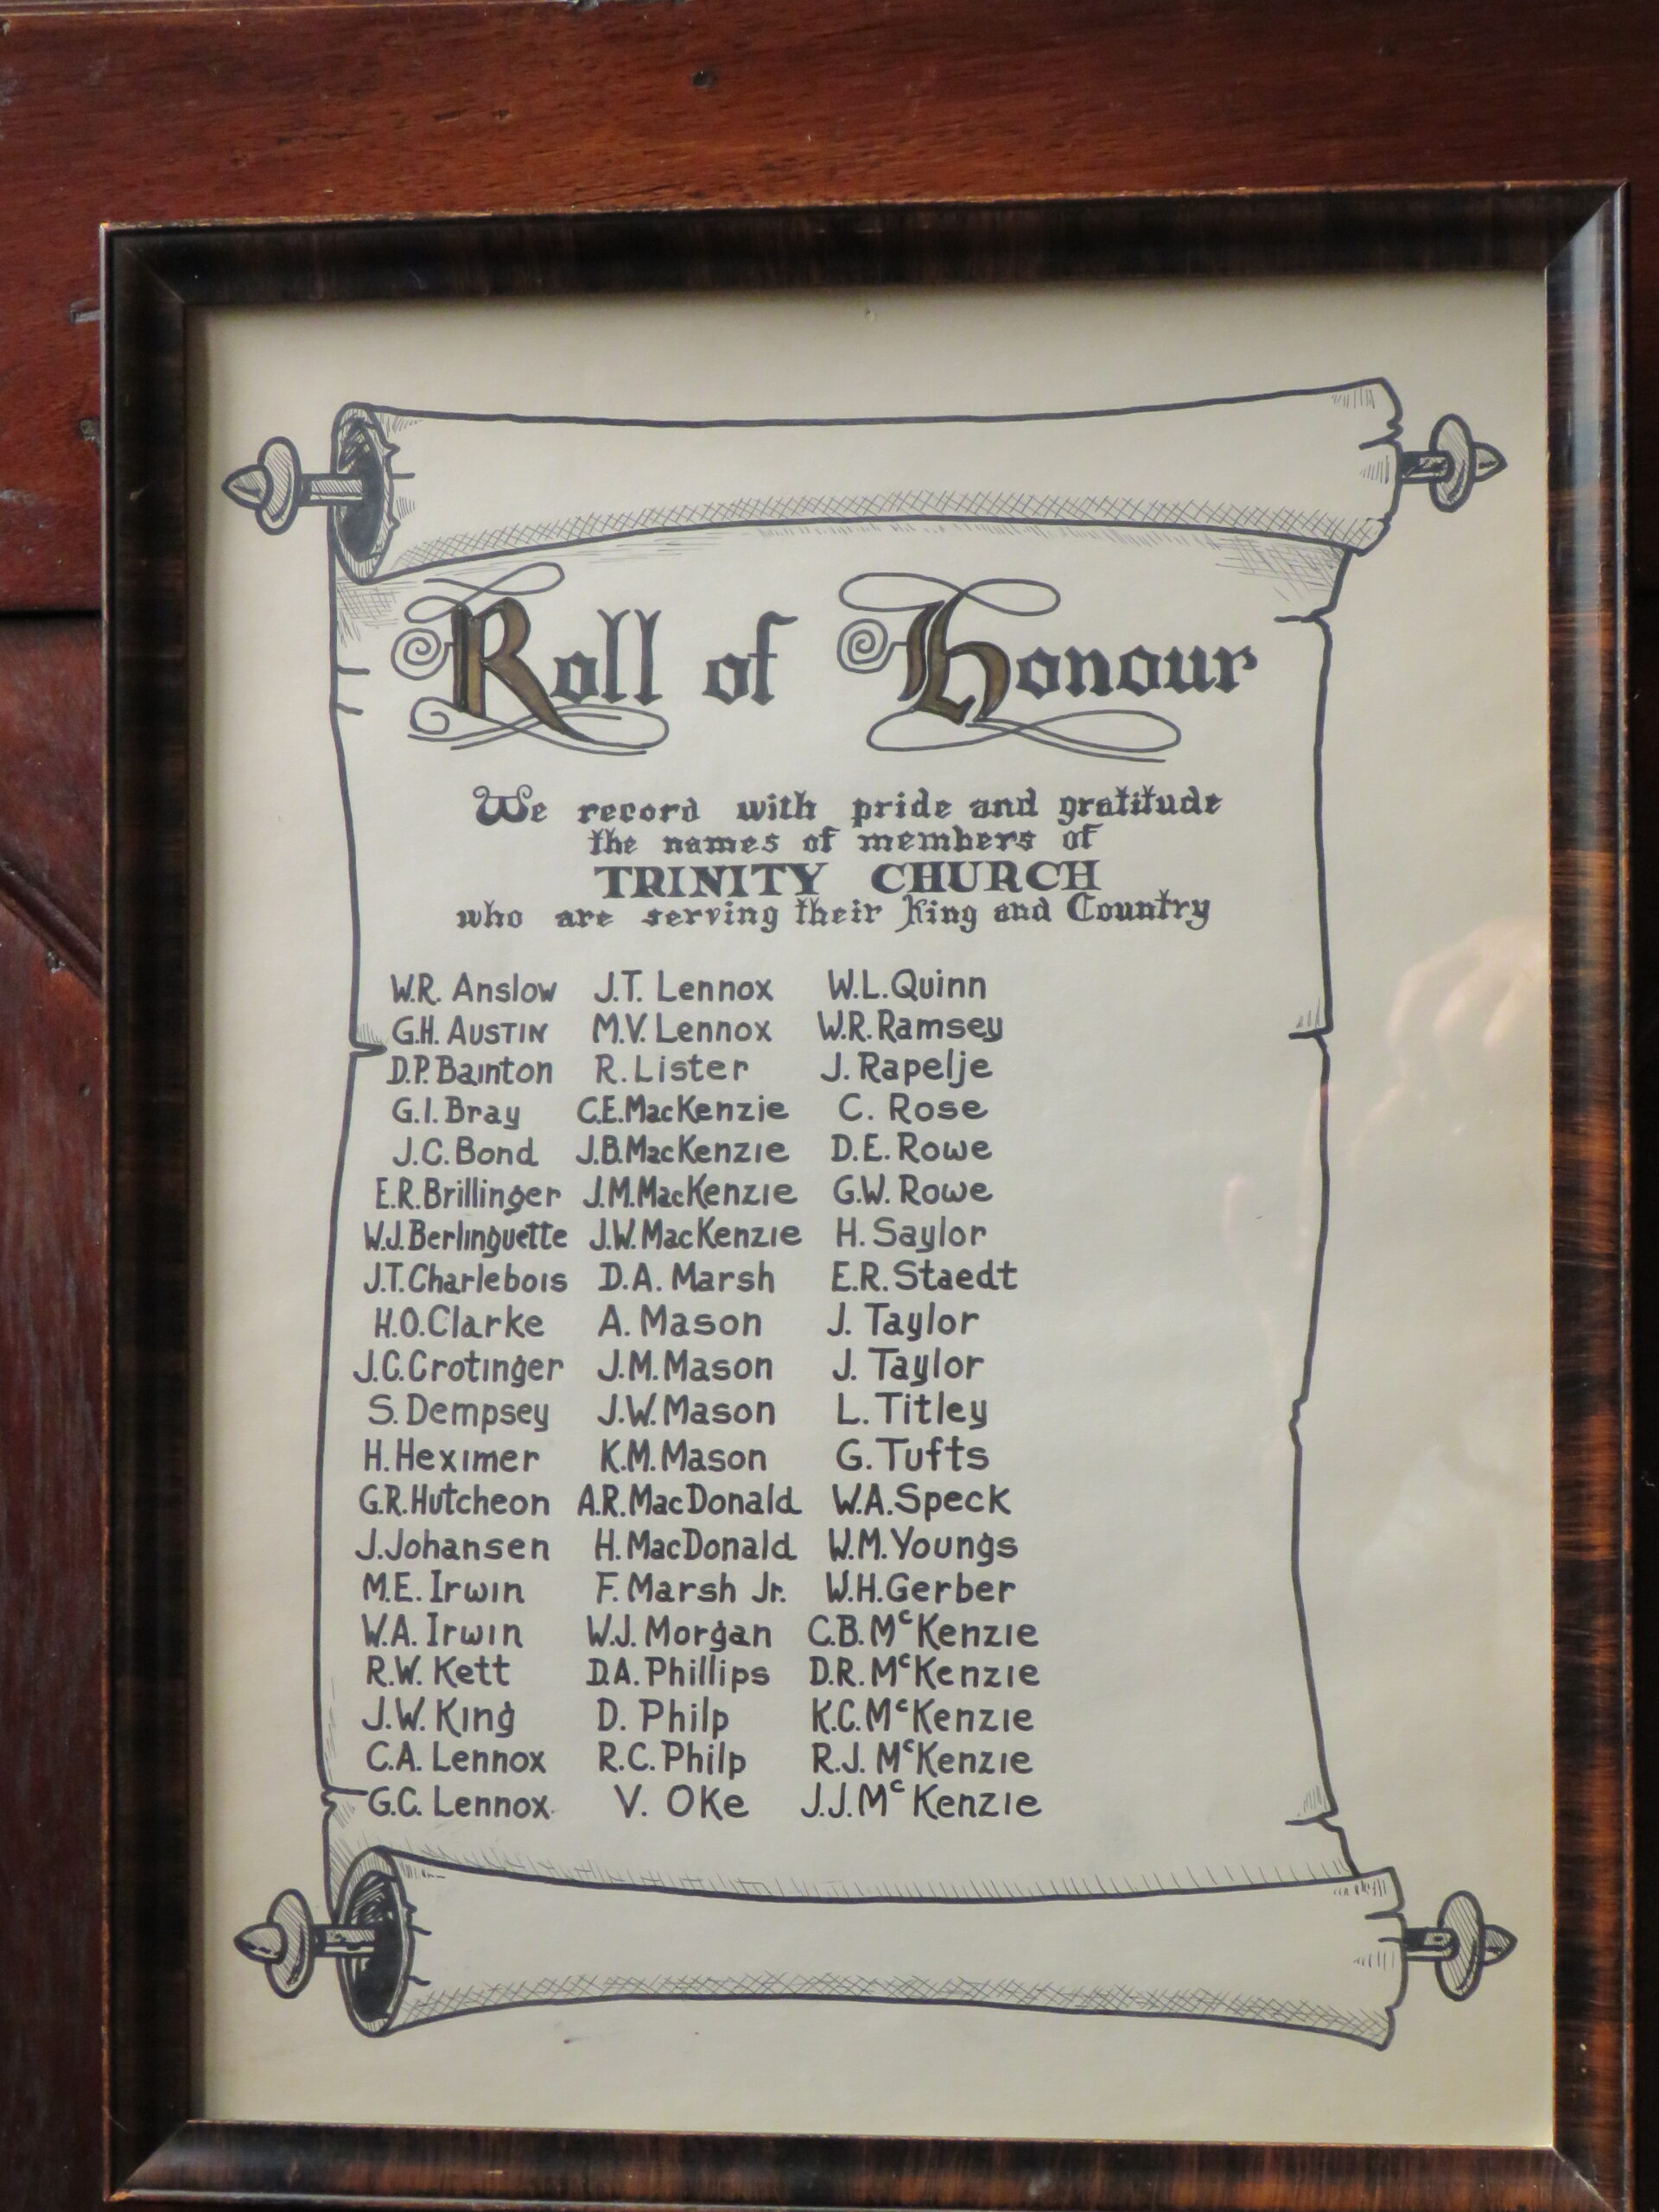 Roll of Honour
We record with pride and gratitude
the names of members of
TRINITY CHURCH
who are serving their King and Country
W.R. Anslow J.T. Lennox W.L. Quinn
G.H. AUSTIN M.V. Lennox W.R. Ramsey
D.P. Bainton R. Lister J. Rapelje
G.I. Bray C.E. MacKenzie C. Rose
J.C. Bond J.B. MacKenzie D.E. Rowe
E.R. Brillinger J.M. MacKenzie G.W. Rowe
W.J. Berlinguette J.W. MacKenzie H. Saylor
J.T. Charlebois D.A. Marsh E.R. Staedt
H.O. Clarke A. Mason J. Taylor
J.C. Crotinger J.M. Mason J. Taylor
S. Dempsey J.W. Mason L. Titley
H. Heximer K.M. Mason G. Tufts
G.R. Hutcheon A.R. MacDonald W.A. Speck
J. Johansen H. MacDonald W.M. Youngs
M.E. Irwin F. Marsh Jr. W.H. Gerber
W.A. Irwin W.J. Morgan C.B. McKenzie
R.W. Kett D.A. Phillips D.R. McKenzie
J.W. King D. Philp K.C. McKenzie
C.A. Lennox R.C. Philp R.J. McKenzie
G.C. Lennox V. Oke J.J. McKenzie